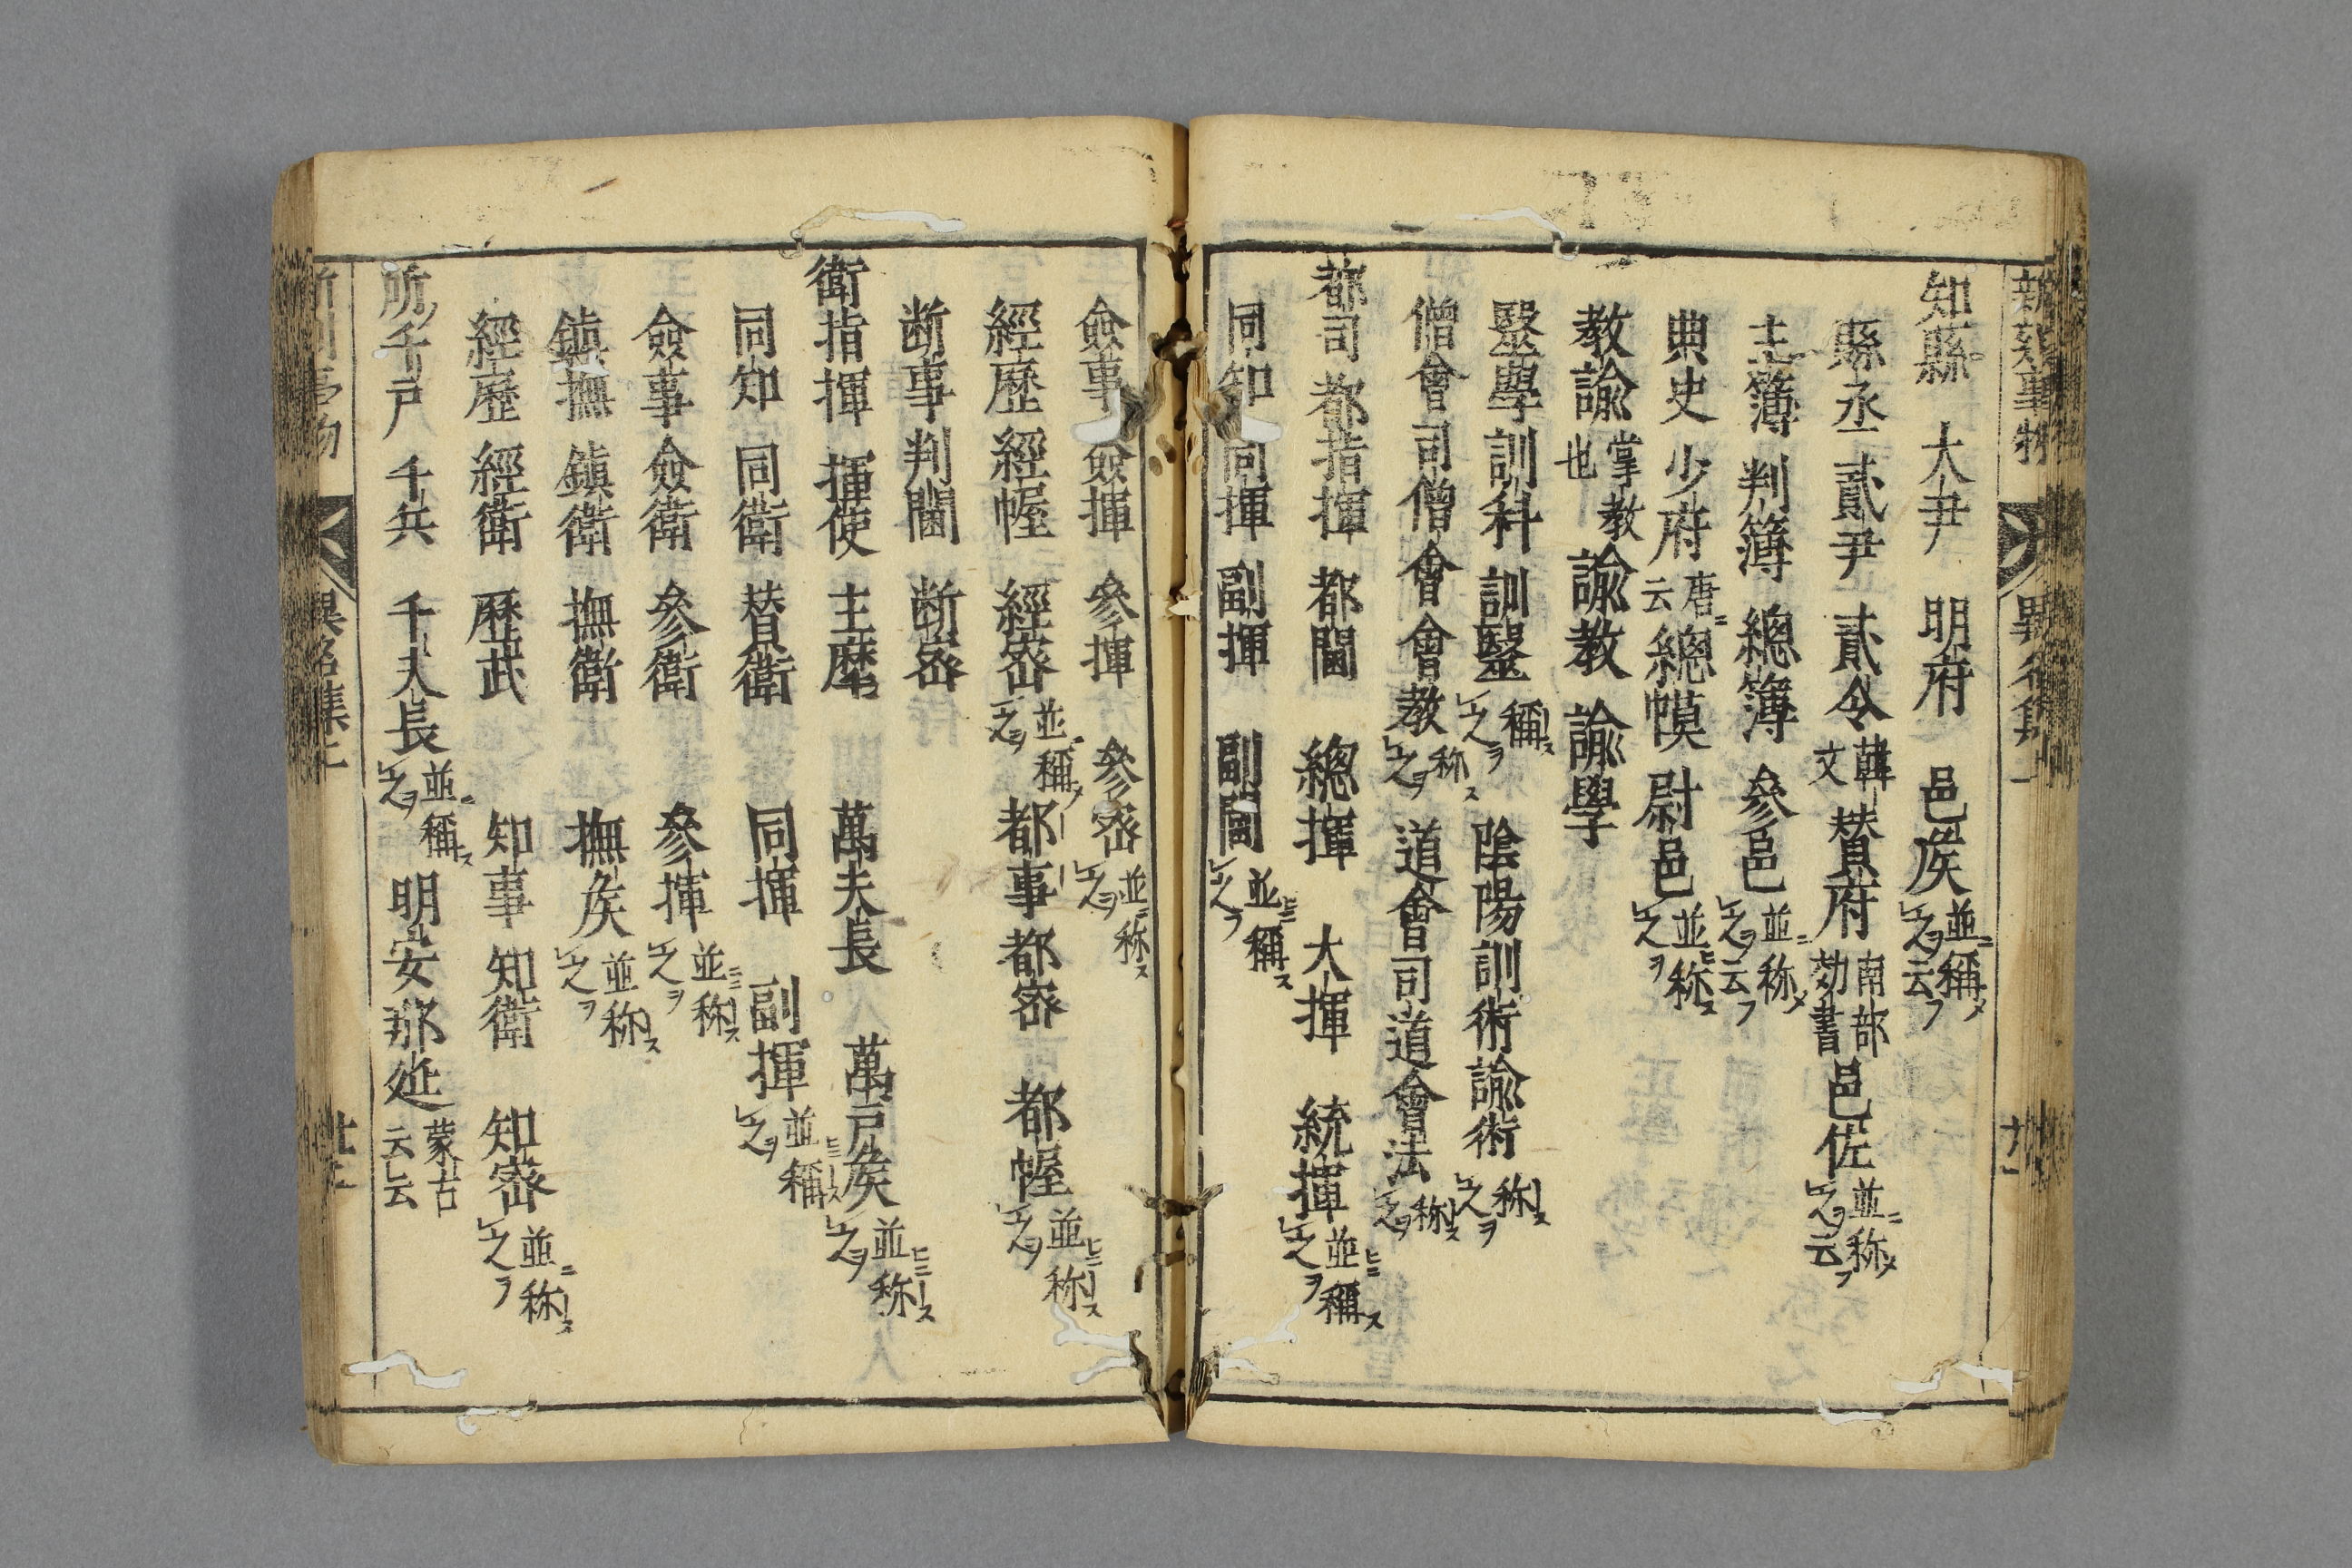 新刻事物異名集上
知縣 大尹 明府 邑矦並稱メ之ヲ云フ
縣丞 貳尹 貳令韓文 賛府南部効書 邑佐並ニ称メ之ヲ云フ
主簿 判簿 總簿 參邑並ニ称メ之ヲ云フ
典史 少府唐ニ云 總幙 尉邑並ニ称ス之ヲ
教諭掌教也 教諭教 諭學
醫學訓科 訓醫稱ス之ヲ 陰陽訓術 諭術称ス之ヲ
僧會司僧會 會教称ス之ヲ 道會司道會 會法称ス之ヲ
都司 都指揮 都閫 總揮 大揮 統揮並ニ稱ス之ヲ
同知 同揮 副揮 副閫並ニ稱ス之ヲ
僉事 僉揮 參揮 參宻並ニ称ス之ヲ
經歷 經幄 經宻並ニ稱ス之ヲ 都事 都宻 都幄並ニ称ス之ヲ
断事 判閫 断宻
衛指揮 揮使 主麾 萬夫長 萬戸矦並ニ称ス之ヲ
同知 同衛 賛衛 同揮 副揮並ニ稱ス之ヲ
僉事 僉衛 參衛 參揮並ニ称ス之ヲ
鎮撫 鎮衛 撫衛 撫矦並ニ称ス之ヲ
經歷 經衛 歷武 知事 知衛 知宻並ニ称ス之ヲ
所千戸 千兵 千夫長並ニ稱ス之ヲ 明安那延蒙古云云
異名集上